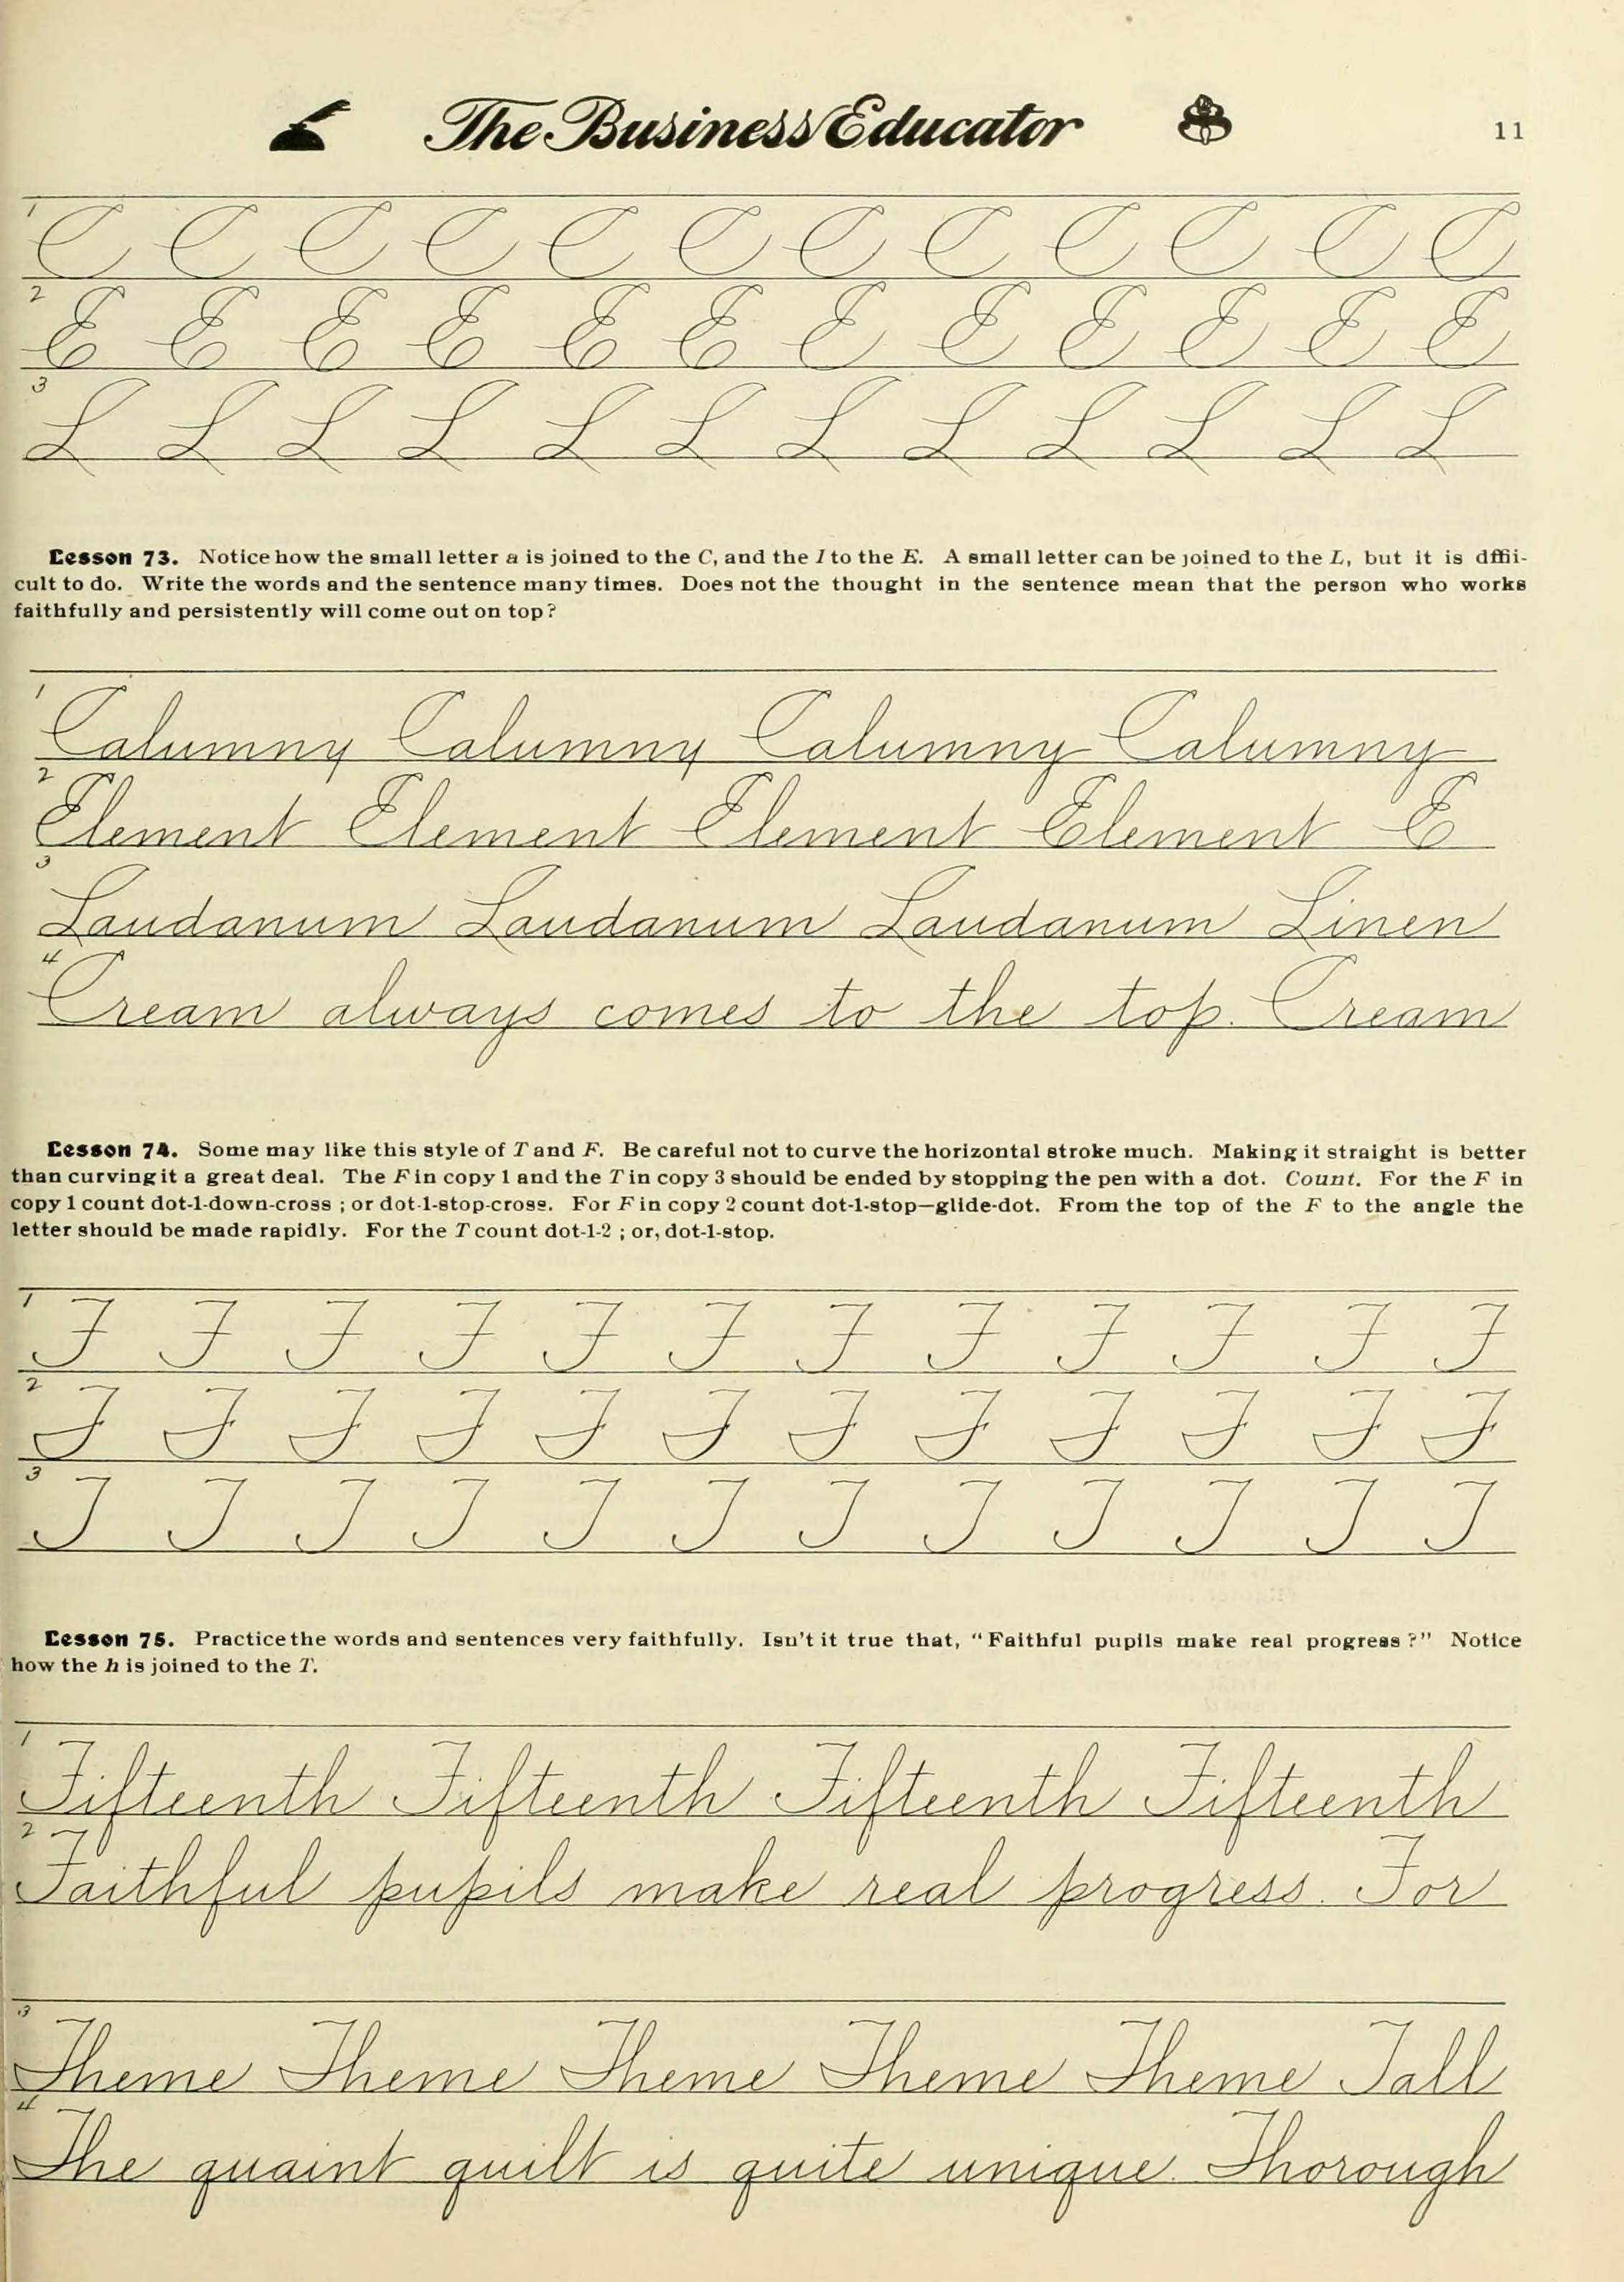 The Business Educator 11
1
C C C C C C C C C C C C
2
E E E E E E E E E E E E
3
L L L L L L L L L L L L
Lesson 73. Notice how the small letter a is joined to the C, and the l to the E. A small letter can be joined to the L, but it is dffii-
cult to do. Write the words and the sentence many times. Does not the thought in the sentence mean that the person who works
faithfully and persistently will come out on top?
1
Calumny Calumny Calumny Calumny
2
Element Element Element Element E
3
Laudanum Laudanum Laudanum Linen
4
Cream always comes to the top. Cream
Lesson 74. Some may like this style of T and F. Be careful not to curve the horizontal stroke much. Making it straight is better
than curving it a great deal. The F in copy 1 and the T in copy 3 should be ended by stopping the pen with a dot. Count. For the F in
copy 1 count dot-1-down-cross ; or dot-1-stop-cross. For F in copy 2 count dot-1-stop—glide-dot. From the top of the F to the angle the
letter should be made rapidly. For the T count dot-1-2 ; or, dot-1-stop.
1
F F F F F F F F F F F F
2
F F F F F F F F F F F F
3
T T T T T T T T T T T T
Lesson 75. Practice the words and sentences very faithfully. Isn't it true that, "Faithful pupils make real progress?" Notice
how the h is joined to the T.
1
Fifteenth Fifteenth Fifteenth Fifteenth
2
Faithful pupils make real progress. For
3
Theme Theme Theme Theme Theme Tall
4
The quaint quilt is quite unique. Thorough